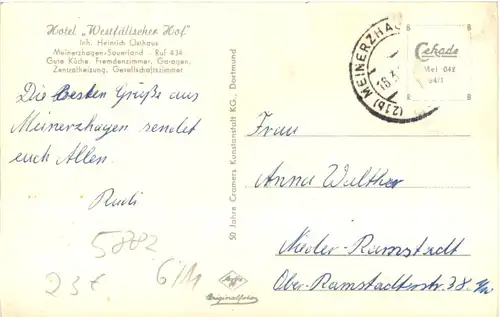 Hotel „Westfälischer Hof"
Inh. Heinrich Osthaus
Meinerzhagen-Sauerland - Ruf 434
Gute Küche, Fremdenzimmer, Garagen,
Zentralheizung, Gesellschaftszimmer
Die besten Grüße aus
Meinerzhagen sendet
euch Allen.
Rudi
5882
23€
6/11
50 Jahre Cramers Kunstanstalt KG., Dortmund
Agfa
Originalfoto
(21b) MEINERZHA
Cekade
Mei 042
Frau
Anna Walther
Nieder-Ramstadt
Ober-Ramstadterstr. 38